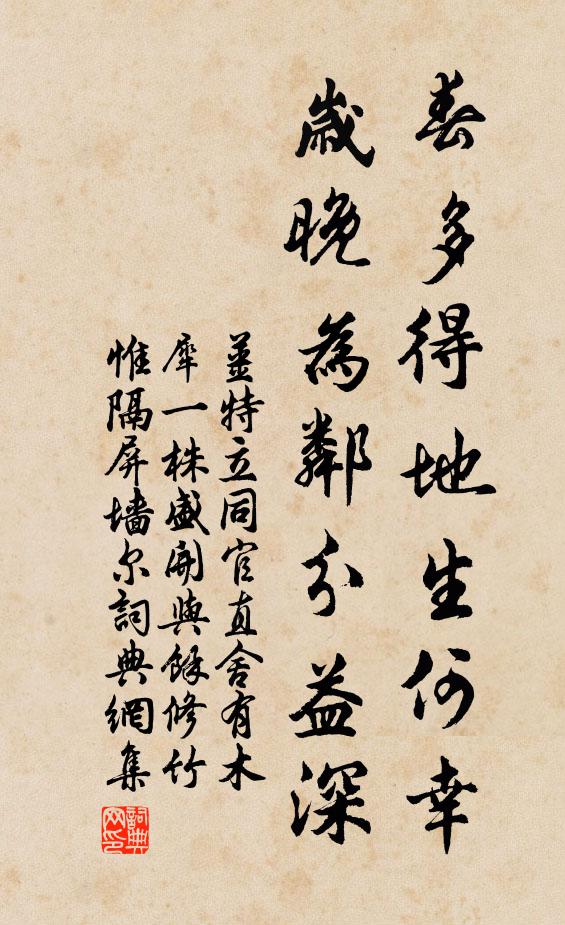 春多得地生何幸
歲晚為鄰分益深
姜特立同官直舍有木
犀一株盛開與餘修竹
惟隔屏墙尔詞典網集
詞典网印